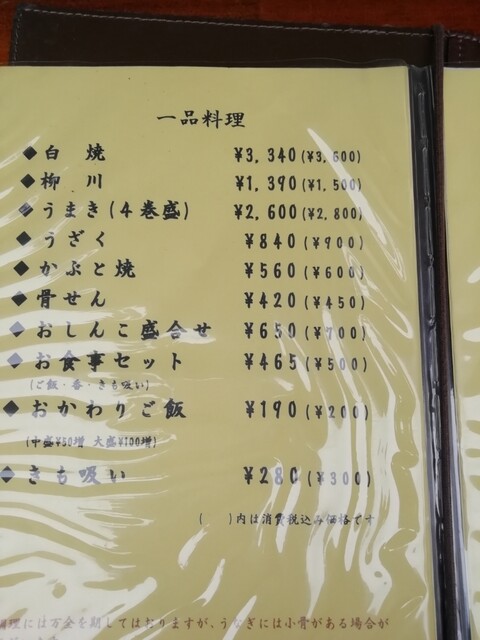 一品料理
◆白　焼 ¥3,340(¥3,600)
◆柳　川 ¥1,390(¥1,500)
◆うまき(4巻盛) ¥2,600(¥2,800)
◆うざく ¥840(¥900)
◆かぶと焼 ¥560(¥600)
◆骨せん ¥420(¥450)
◆おしんこ盛合せ ¥650(¥700)
◆お食事セット ¥465(¥500)
(ご飯・香・きも吸い)
◆おかわりご飯 ¥190(¥200)
(中盛¥50増 大盛¥100増)
◆きも吸い ¥280(¥300)
(　　)内は消費税込み価格です
調理には万全を期してはおりますが、うなぎには小骨がある場合が